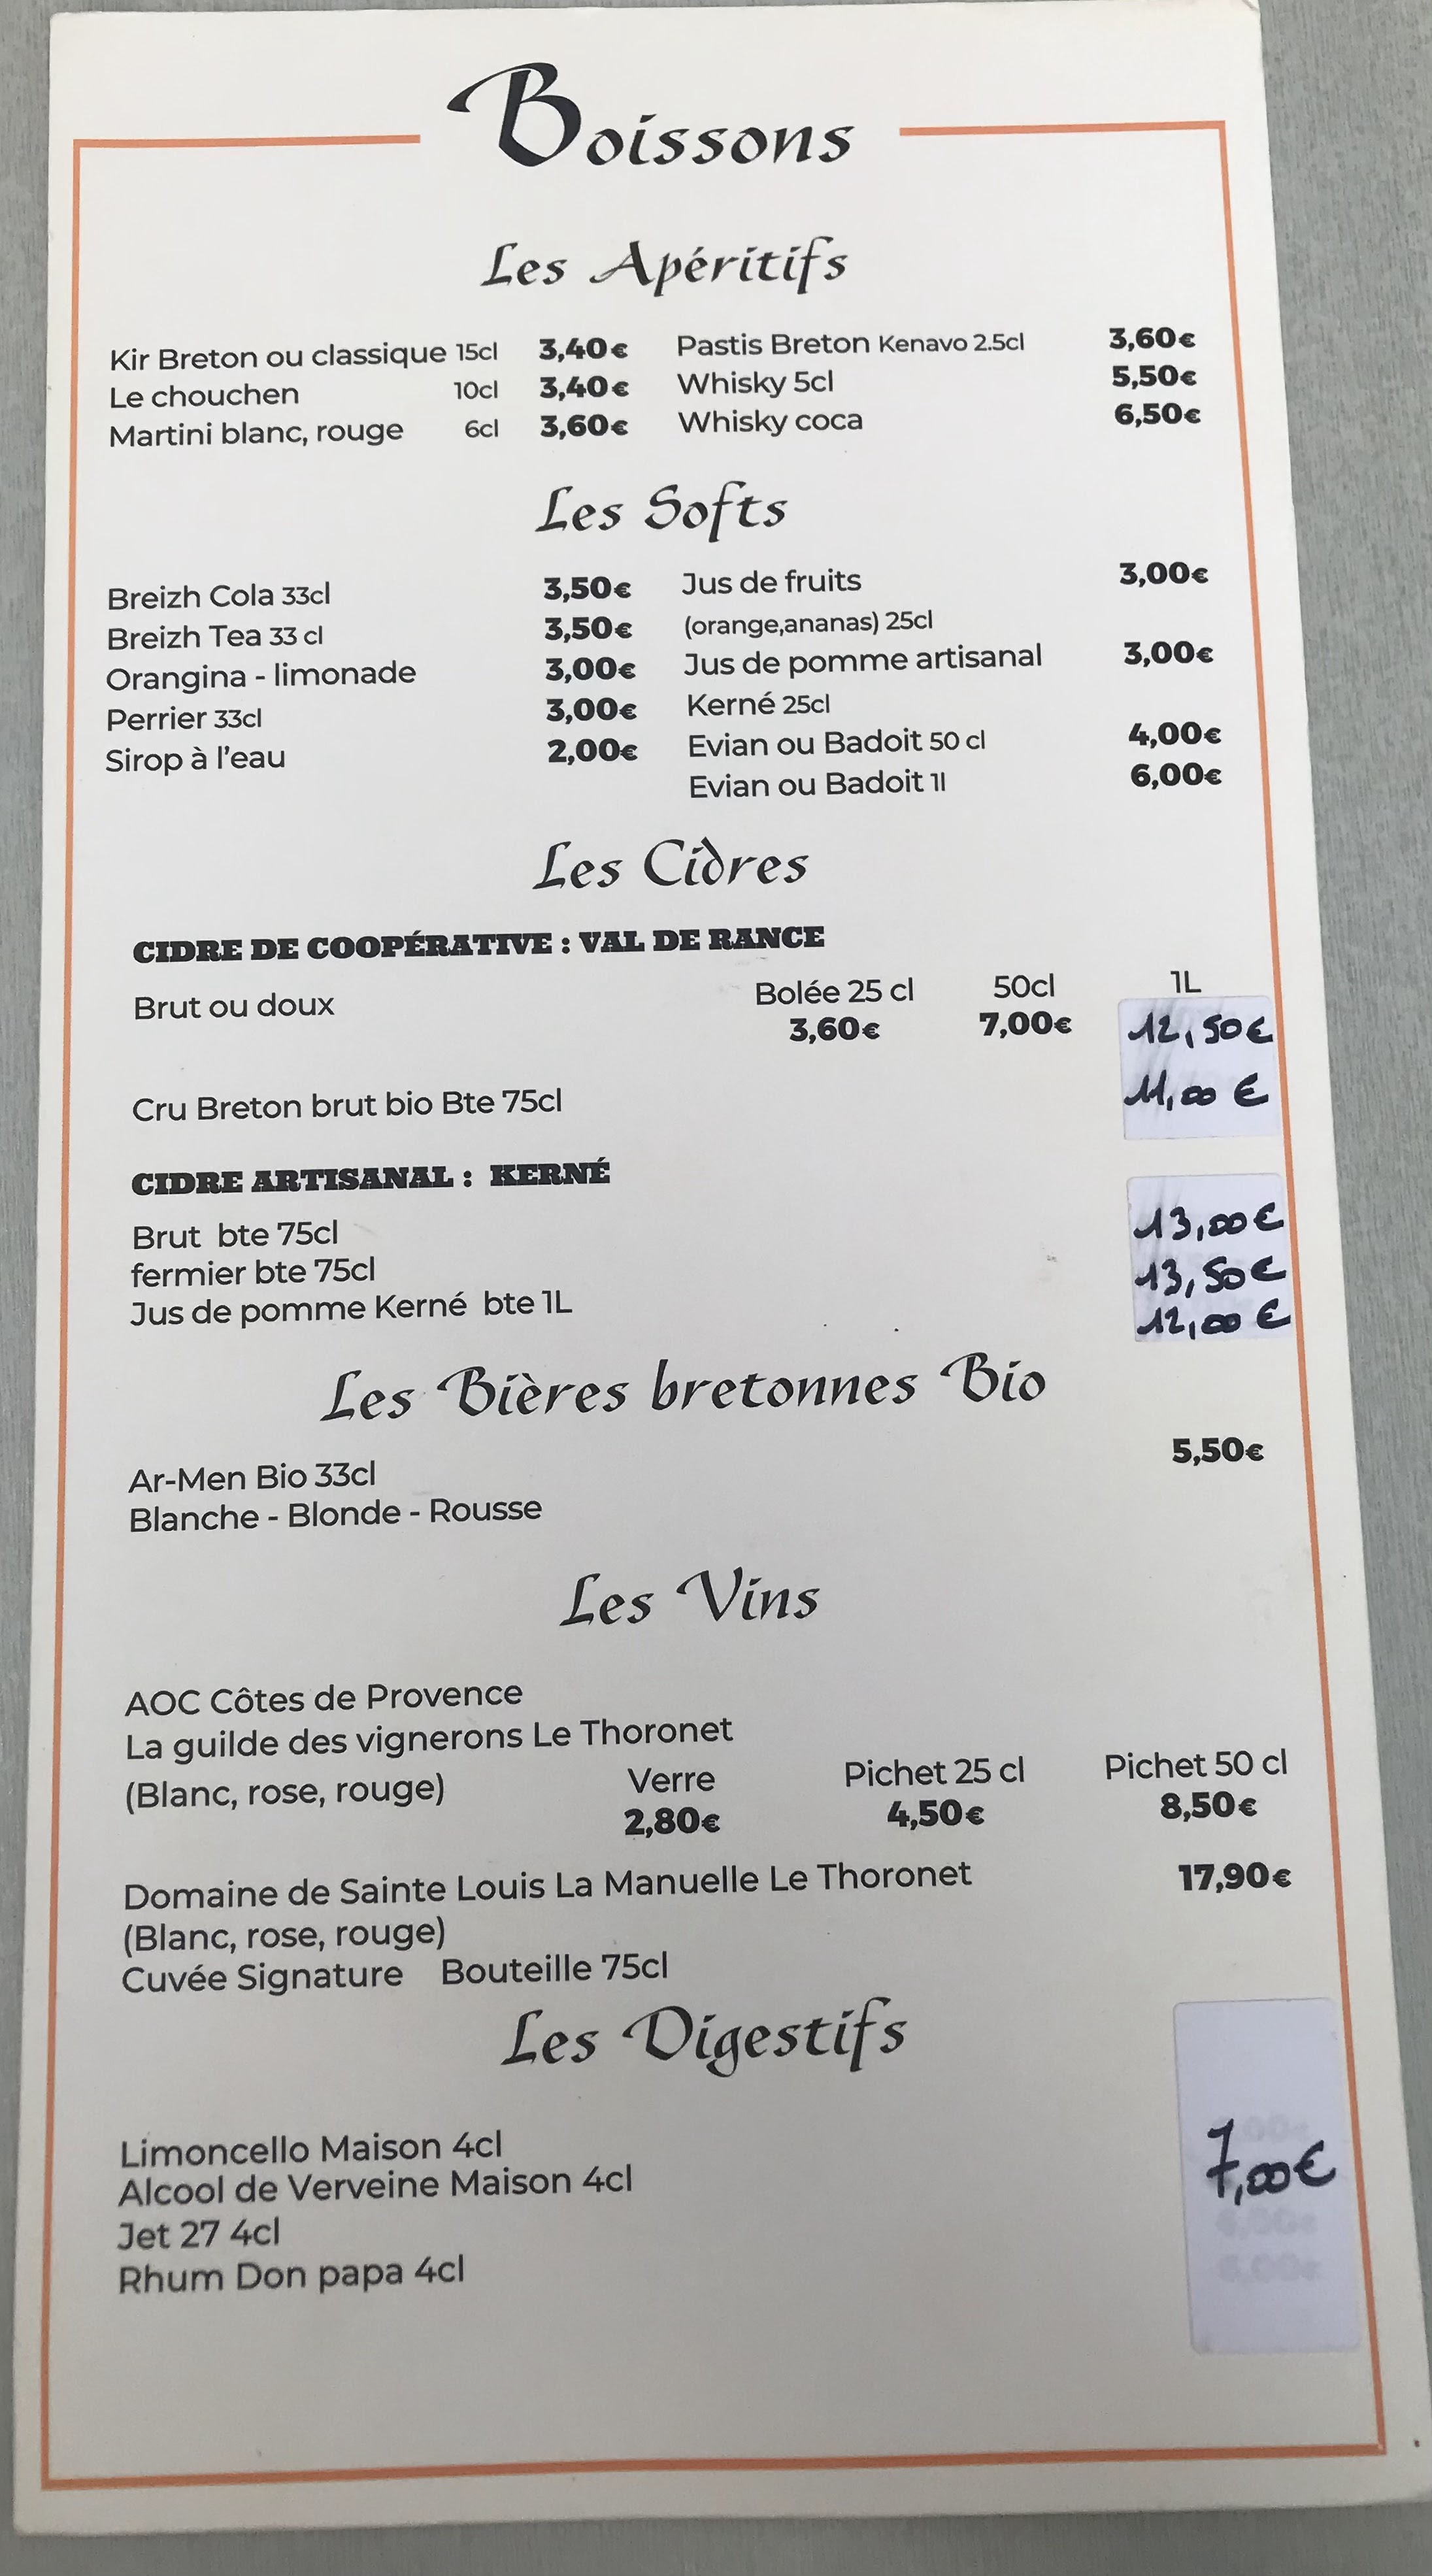 Boissons
Les Apéritifs
Kir Breton ou classique 15cl 3,40€ Pastis Breton Kenavo 2.5cl 3,60€
Le chouchen 10cl 3,40€ Whisky 5cl 5,50€
Martini blanc, rouge 6cl 3,60€ Whisky coca 6,50€
Les Softs
Breizh Cola 33cl 3,50€ Jus de fruits 3,00€
Breizh Tea 33 cl 3,50€ (orange,ananas) 25cl
Orangina - limonade 3,00€ Jus de pomme artisanal 3,00€
Perrier 33cl 3,00€ Kerné 25cl
Sirop à l'eau 2,00€ Evian ou Badoit 50 cl 4,00€
Evian ou Badoit 1l 6,00€
Les Cidres
CIDRE DE COOPÉRATIVE : VAL DE RANCE
Brut ou doux Bolée 25 cl 50cl 1L
3,60€ 7,00€ 12,50€
Cru Breton brut bio Bte 75cl 11,00 €
CIDRE ARTISANAL : KERNÉ
Brut bte 75cl 13,00€
fermier bte 75cl 13,50€
Jus de pomme Kerné bte 1L 12,00 €
Les Bières bretonnes Bio
Ar-Men Bio 33cl 5,50€
Blanche - Blonde - Rousse
Les Vins
AOC Côtes de Provence
La guilde des vignerons Le Thoronet
(Blanc, rose, rouge) Verre Pichet 25 cl Pichet 50 cl
2,80€ 4,50€ 8,50€
Domaine de Sainte Louis La Manuelle Le Thoronet 17,90€
(Blanc, rose, rouge)
Cuvée Signature Bouteille 75cl
Les Digestifs
Limoncello Maison 4cl
Alcool de Verveine Maison 4cl 7,00€
Jet 27 4cl
Rhum Don papa 4cl